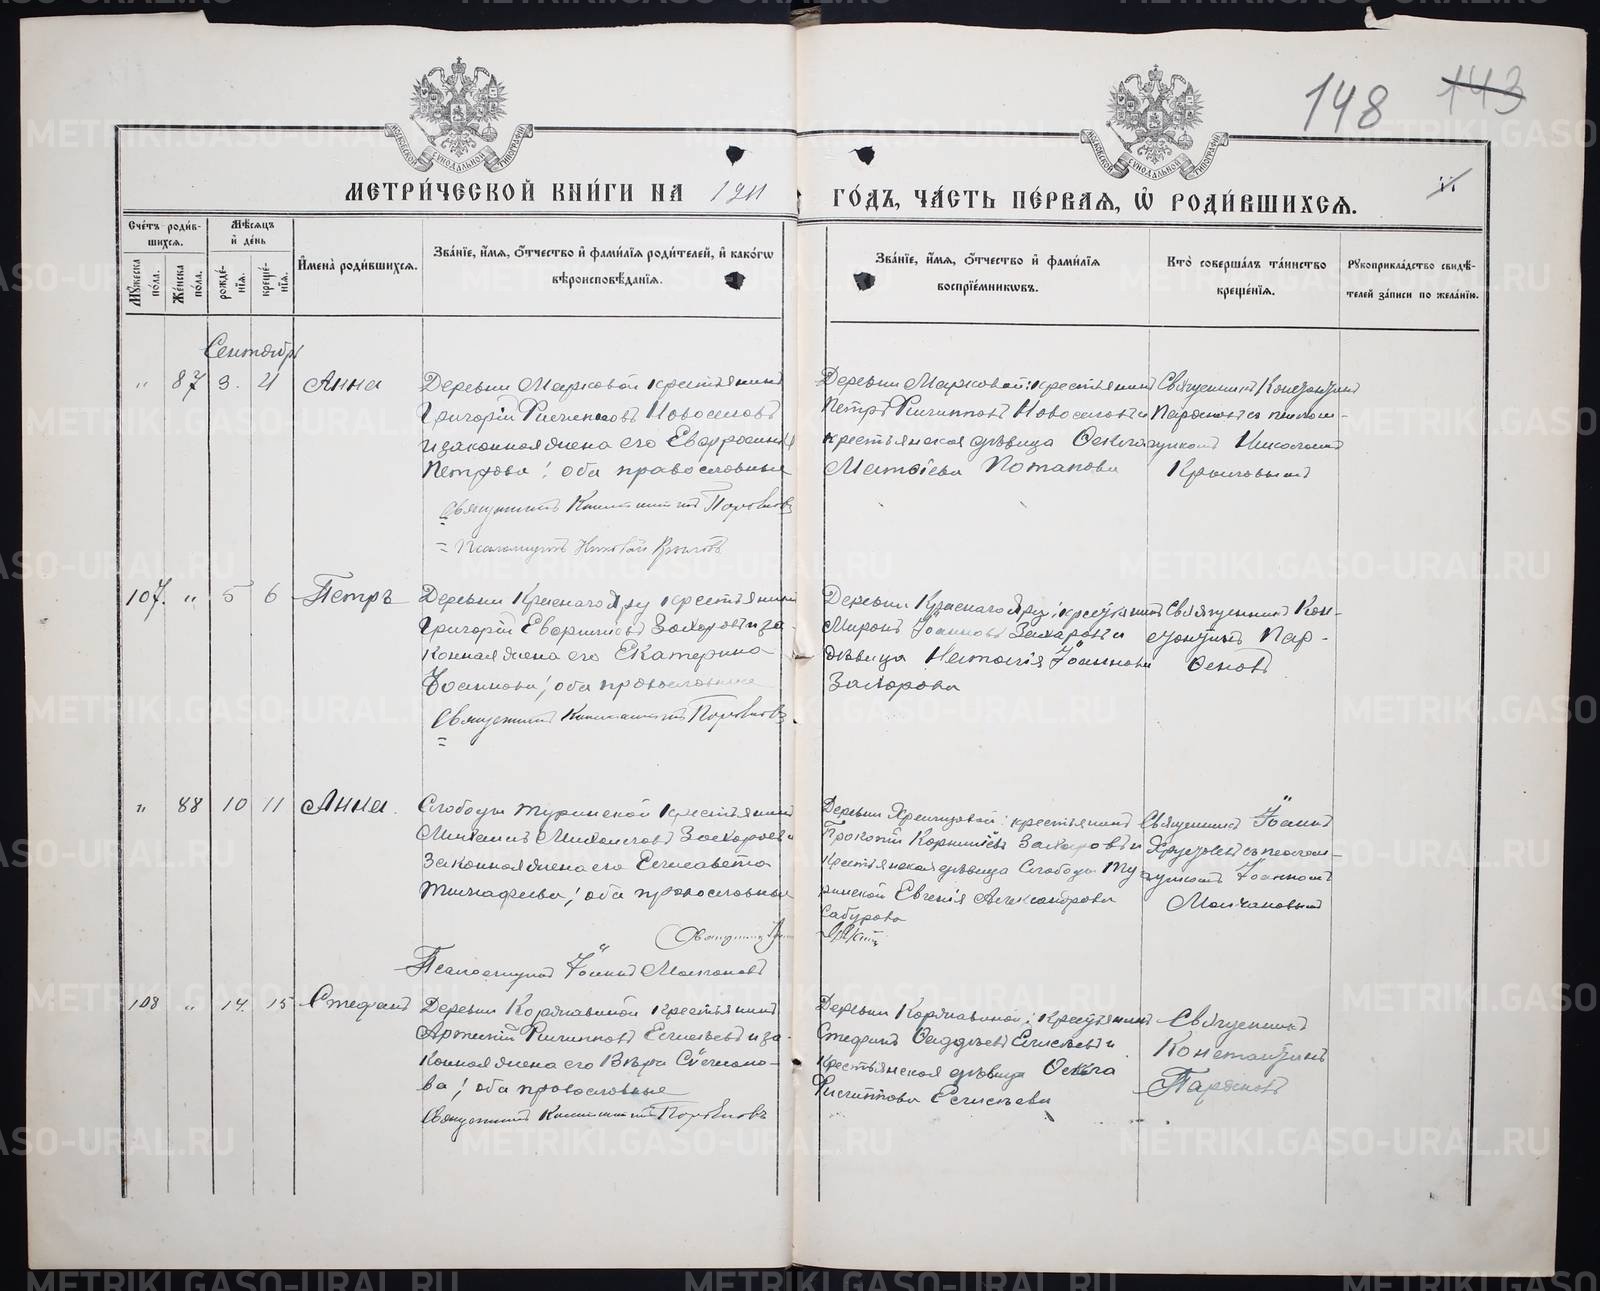 148 143
МЕТРИ́ЧЕСКОЙ КНИ́ГИ НА 1911 ГО́ДЪ, ЧА́СТЬ ПЕ́РВАЯ, Ѡ РОДИ́ВШИХСЯ.
Сче́тъ роди́вшихся.
Мѣ́сяцъ и҆ де́нь
Мꙋжеска по́ла.
Же́нска по́ла.
рожде́нїя.
креще́нїя.
И҆мена̀ роди́вшихся.
Зва́нїе, и҆́мя, ѻ҆́тчество и҆ фами́лїя роди́телей, и҆ како́гѡ вѣроисповѣ́данїя.
Зва́нїе, и҆́мя, ѻ҆́тчество и҆ фами́лїя воспрїе́мникѡвъ.
Кто̀ соверша́лъ та́инство креще́нїя.
Рꙋкоприкла́дство свидѣ́телей за́писи по жела́нїю.
Сентябрь
" 87 3. 4 Анна
Деревни Марковой крестьянинъ
Григорій Филипповъ Новоселовъ
и законная жена его Евфросинія
Петрова; оба православные
Священникъ Константинъ Парѳеновъ
Псаломщикъ Николай Крыловъ
Деревни Марковой: крестьянинъ
Петръ Филипповъ Новоселовъ и
крестьянская дѣвица Ольга
Матѳіева Потапова
Священникъ Константинъ
Парѳеновъ съ псалом-
щикомъ Николаемъ
Крыловымъ
107. " 5 6 Петръ
Деревни Краснаго Яру крестьянинъ
Григорій Захаровъ и за-
конная жена его Екатерина
Іоаннова; оба православные
Священникъ Константинъ Парѳеновъ
Деревни Краснаго Яру: крестьянинъ
Миронъ Іоанновъ Захаровъ и
дѣвица Наталія Іоаннова
Захарова
Священникъ Кон-
стантинъ Пар-
ѳеновъ
" 88 10 11 Анна.
Слободы Туринской крестьянинъ
Михаилъ Михаиловъ Захаровъ и
законная жена его Елисавета
Тимофеева; оба православные
Священникъ
Псаломщикъ Іоаннъ Молчановъ
Деревни крестьянинъ
Прокопій Корниліевъ Захаровъ и
крестьянская дѣвица Слободы Ту-
ринской Евгенія Александрова
Сабурова
Священникъ Іоаннъ
съ псалом-
щикомъ Іоанномъ
Молчановымъ
108 " 14. 15 Стефанъ
Деревни Корявиной крестьянинъ
Артемій Филипповъ Елисѣевъ и за-
конная жена его Вѣра Стефано-
ва; оба православные
Священникъ Константинъ Парѳеновъ
Деревни Корявиной: крестьянинъ
Стефанъ Ѳаддѣевъ Елисѣевъ и
крестьянская дѣвица Ольга
Филиппова Елисѣева
Священникъ
Константинъ
Парѳеновъ
METRIKI.GASO-URAL.RU